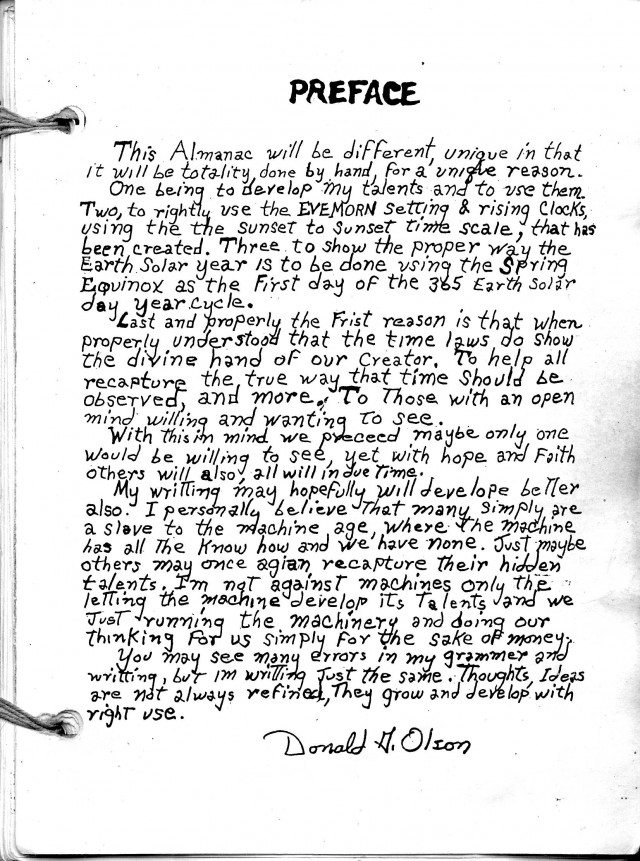 PREFACE
This Almanac will be different, unique in that
it will be totality, done by hand, for a unique reason.
One being to develop my talents and to use them.
Two, to rightly use the EVEMORN setting & rising clocks,
using the the sunset to sunset time scale, that has
been created. Three to show the proper way the
Earth Solar year is to be done using the Spring
Equinox as the first day of the 365 Earth Solar
day year cycle.
Last and properly the Frist reason is that when
properly understood that the time laws do show
the divine hand of our Creator. To help all
recapture the true way that time should be
observed, and more. To Those with an open
mind willing and wanting to see.
With this in mind we preceed maybe only one
would be willing to see, yet with hope and Faith
others will also, all will in due time.
My writting may hopefully will develope better
also. I personally believe that many simply are
a slave to the machine age, where the machine
has all the know how and we have none. Just maybe
others may once agian recapture their hidden
talents. I'm not against machines only the
letting the machine develop its Talents and we
Just running the machinery and doing our
thinking for us simply for the sake of money.
You may see many errors in my grammer and
writting, but im writting just the same. Thoughts, Ideas
are not always refined, They grow and develop with
right use.
Donald G. Olson